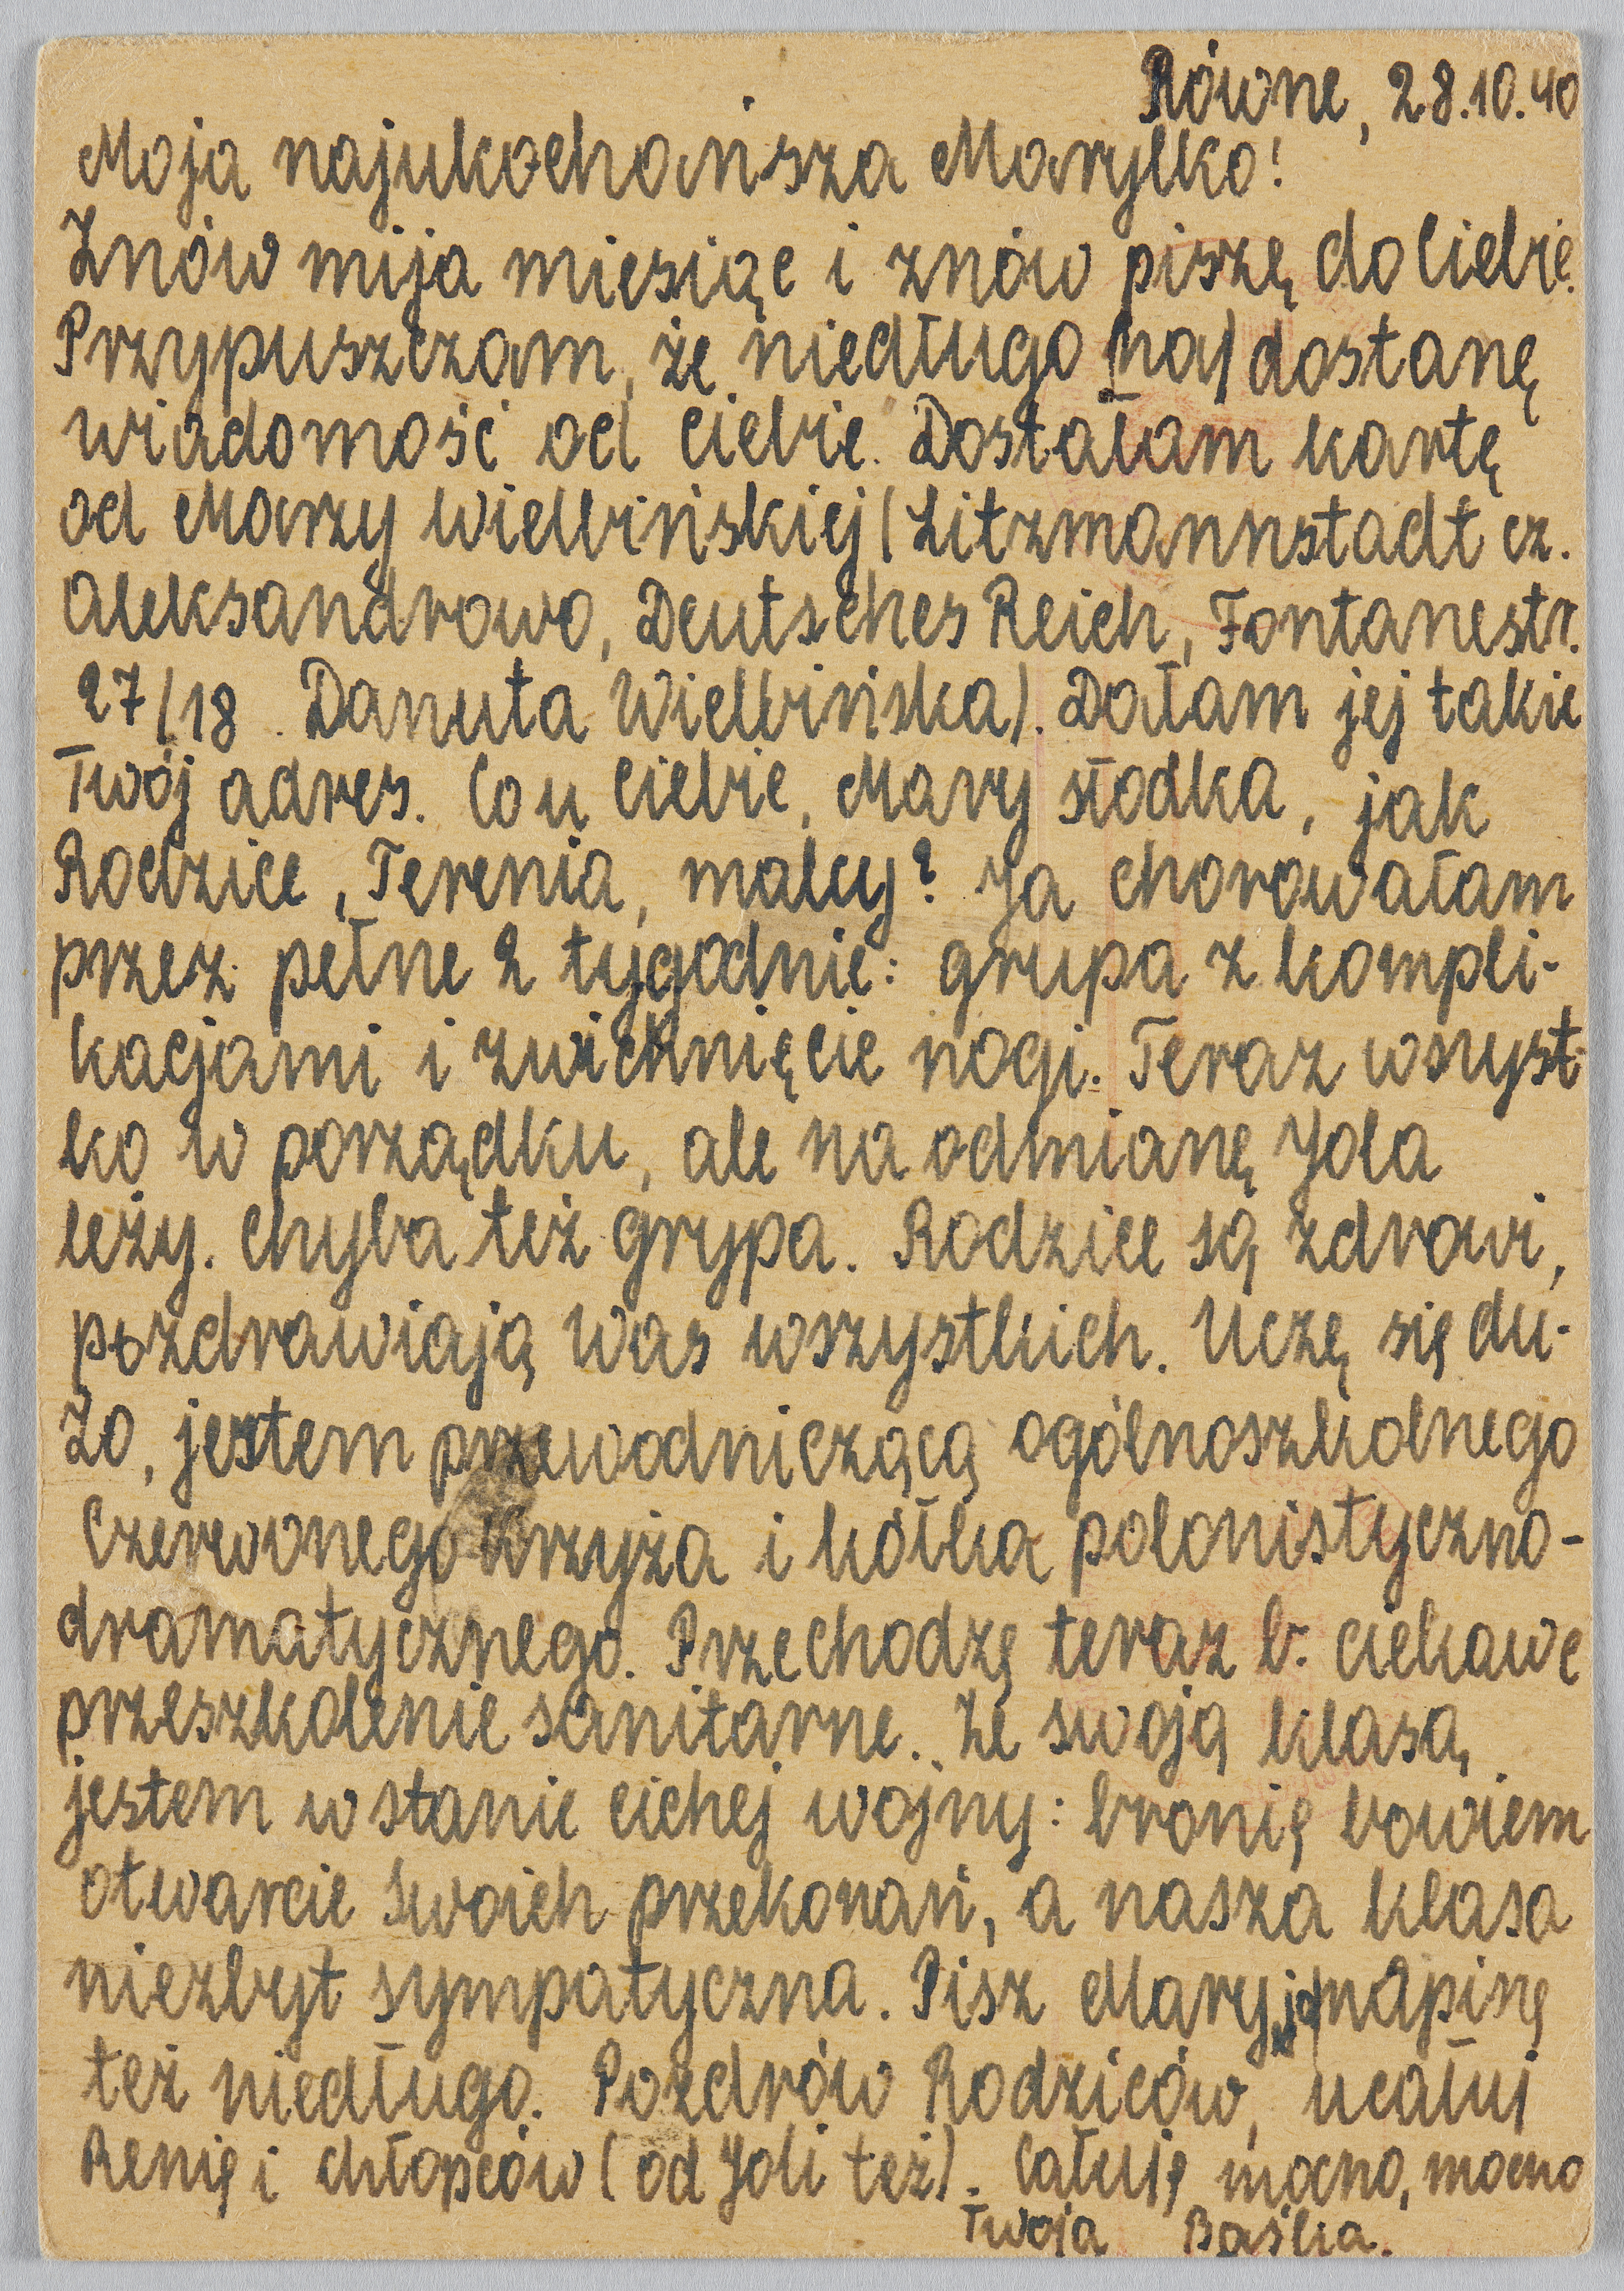 Równe, 28.10.40
Moja najukochańsza Marylko!
Znów mija miesiąc i znów piszę do Ciebie.
Przypuszczam, że niedługo (ha) dostanę
wiadomość od Ciebie. Dostałam kartę
od Marzy Wielbińskiej (Litzmannstadt cz.
Aleksandrowo, Deutsches Reich, Fontanestr.
27/18. Danuta Wielbińska). Dałam jej takie
Twój adres. Co u Ciebie, Mary słodka, jak
Rodzice, Terenia, malcy? Ja chorowałam
przez pełne 2 tygodnie: grypa z kompli-
kacjami i zwichnięcie nogi. Teraz wszyst-
ko w porządku, ale na odmianę Jola
leży. Chyba też grypa. Rodzice są zdrowi,
pozdrawiają Was wszystkich. Uczę się du-
żo, jestem przewodniczącą ogólnoszkolnego
Czerwonego Krzyża i kółka polonistyczno-
dramatycznego. Przechodzę teraz b. ciekawe
przeszkolenie sanitarne. Ze swoją klasą
jestem w stanie cichej wojny: bronię bowiem
otwarcie swoich przekonań, a nasza klasa
niezbyt sympatyczna. Pisz Mary, ja napiszę
też niedługo. Pozdrów Rodziców, ucałuj
Renię i chłopców (od Joli też). Całuję mocno, mocno
Twoja Baśka.